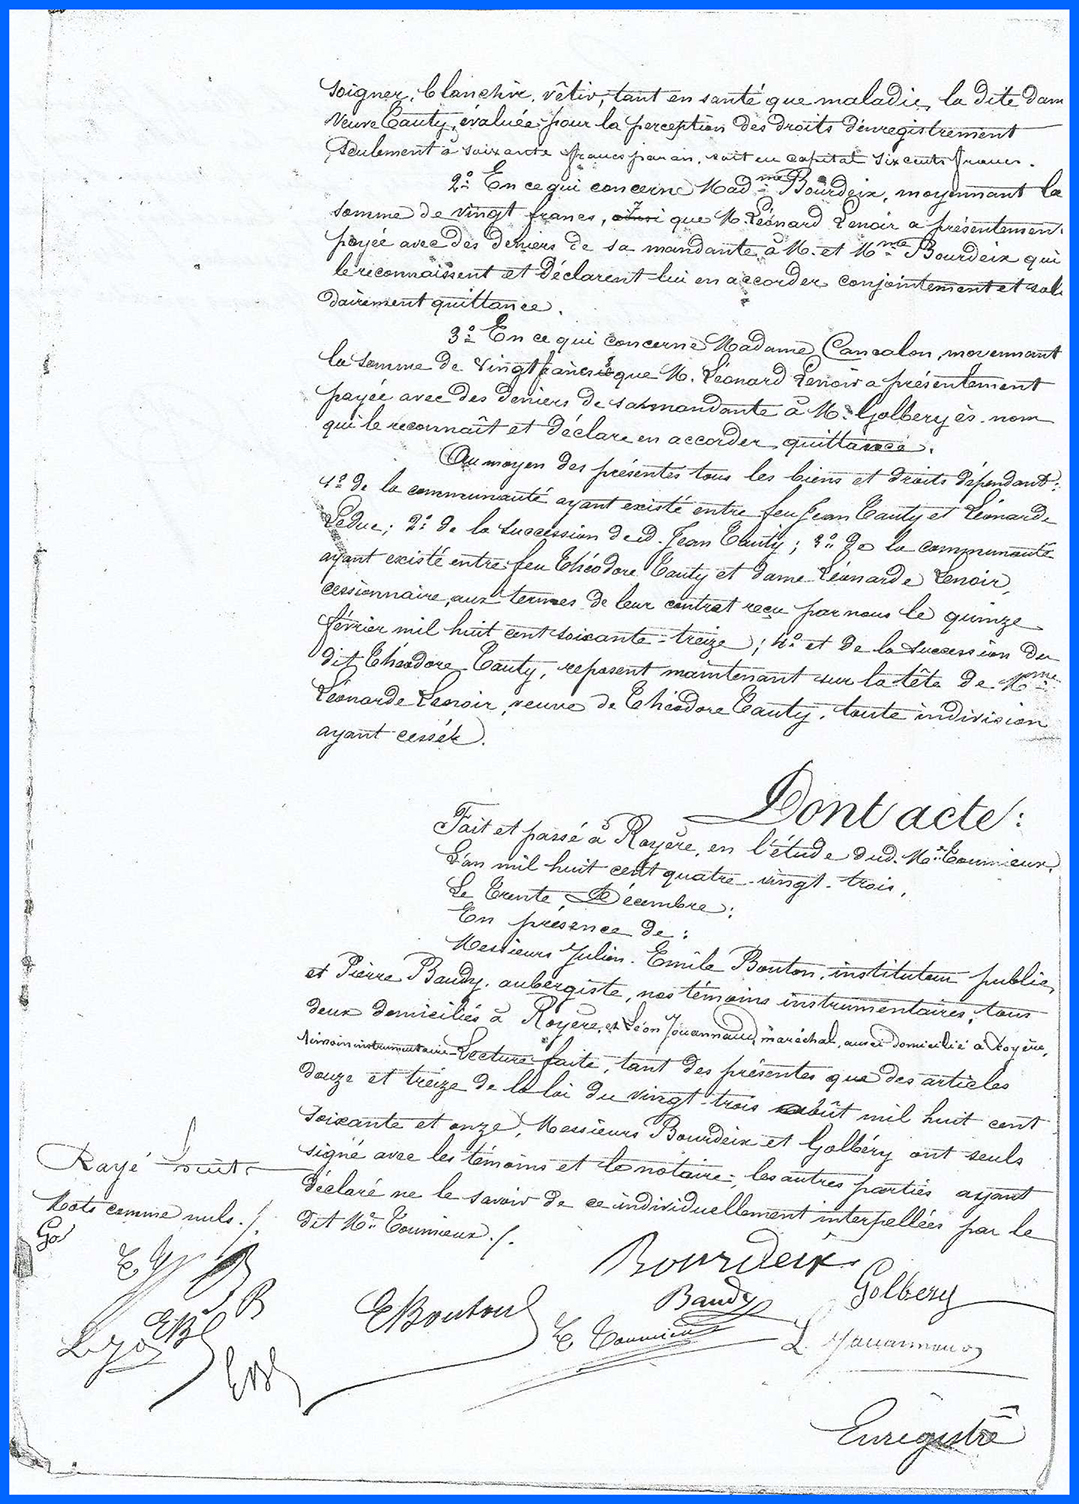 soigner, blanchir, vêtir, tant en santé que maladie, la dite dam
Veuve Tauty, évaluée pour la perception des droits d'enregistrement
seulement à soixante francs par an, soit en capital six cents francs.
2° En ce qui concerne Mad.me Bourdeix, moyennant la
somme de vingt francs, que M. Léonard Lenoir a présentement
payée avec des deniers de sa mandante à M. et Mme Bourdeix qui
le reconnaissent et déclarent lui en accorder conjointement et soli
dairement quittance.
3° En ce qui concerne Madame Cancalon, moyennant
la somme de vingt francs que M. Léonard Lenoir a présentement
payée avec des deniers de sa mandante à M. Golbery ès-nom
qui le reconnaît et déclare en accorder quittance.
Au moyen des présentes tous les biens et droits dépendant:
1° de la communauté ayant existé entre feu Jean Tauty et Léonarde
Leduc; 2° de la succession dud. Jean Tauty; 3° de la communauté
ayant existé entre feu Théodore Tauty et dame Léonarde Lenoir,
cessionnaire, aux termes de leur contrat reçu par nous le quinze
février mil huit cent soixante-treize; 4° et de la succession du
dit Théodore Tauty, reposent maintenant sur la tête de Mme
Léonarde Lenoir, veuve de Théodore Tauty, toute indivision
ayant cessée.
Dont acte:
Fait et passé à Royère, en l'étude dud. Me Toumieux,
L'an mil huit cent quatre-vingt-trois,
Le Trente Décembre;
En présence de:
Messieurs Julien-Emile Bouton, instituteur public,
et Pierre Baudy, aubergiste, nos témoins instrumentaires, tous
deux domiciliés à Royère, et Léon Jouannaud, maréchal, aussi domicilié à Royère,
témoin instrumentaire. Lecture faite, tant des présentes que des articles
douze et treize de la loi du vingt-trois août mil huit cent
soixante et onze, Messieurs Bourdeix et Golbéry ont seuls
signé avec les témoins et le notaire, les autres parties ayant
déclaré ne le savoir de ce individuellement interpellées par le
dit Me Toumieux./.
Rayé huit
Mots comme nuls./.
Go
Bourdeix
Golbery
Baudy
EBouton
E Toumieux
L. Jouannaud
EB
Enregistré